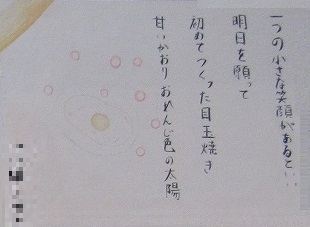 一つの小さな笑顔があるといい
明日を願って
初めてつくった目玉焼き
甘いかおり おれんじ色の太陽